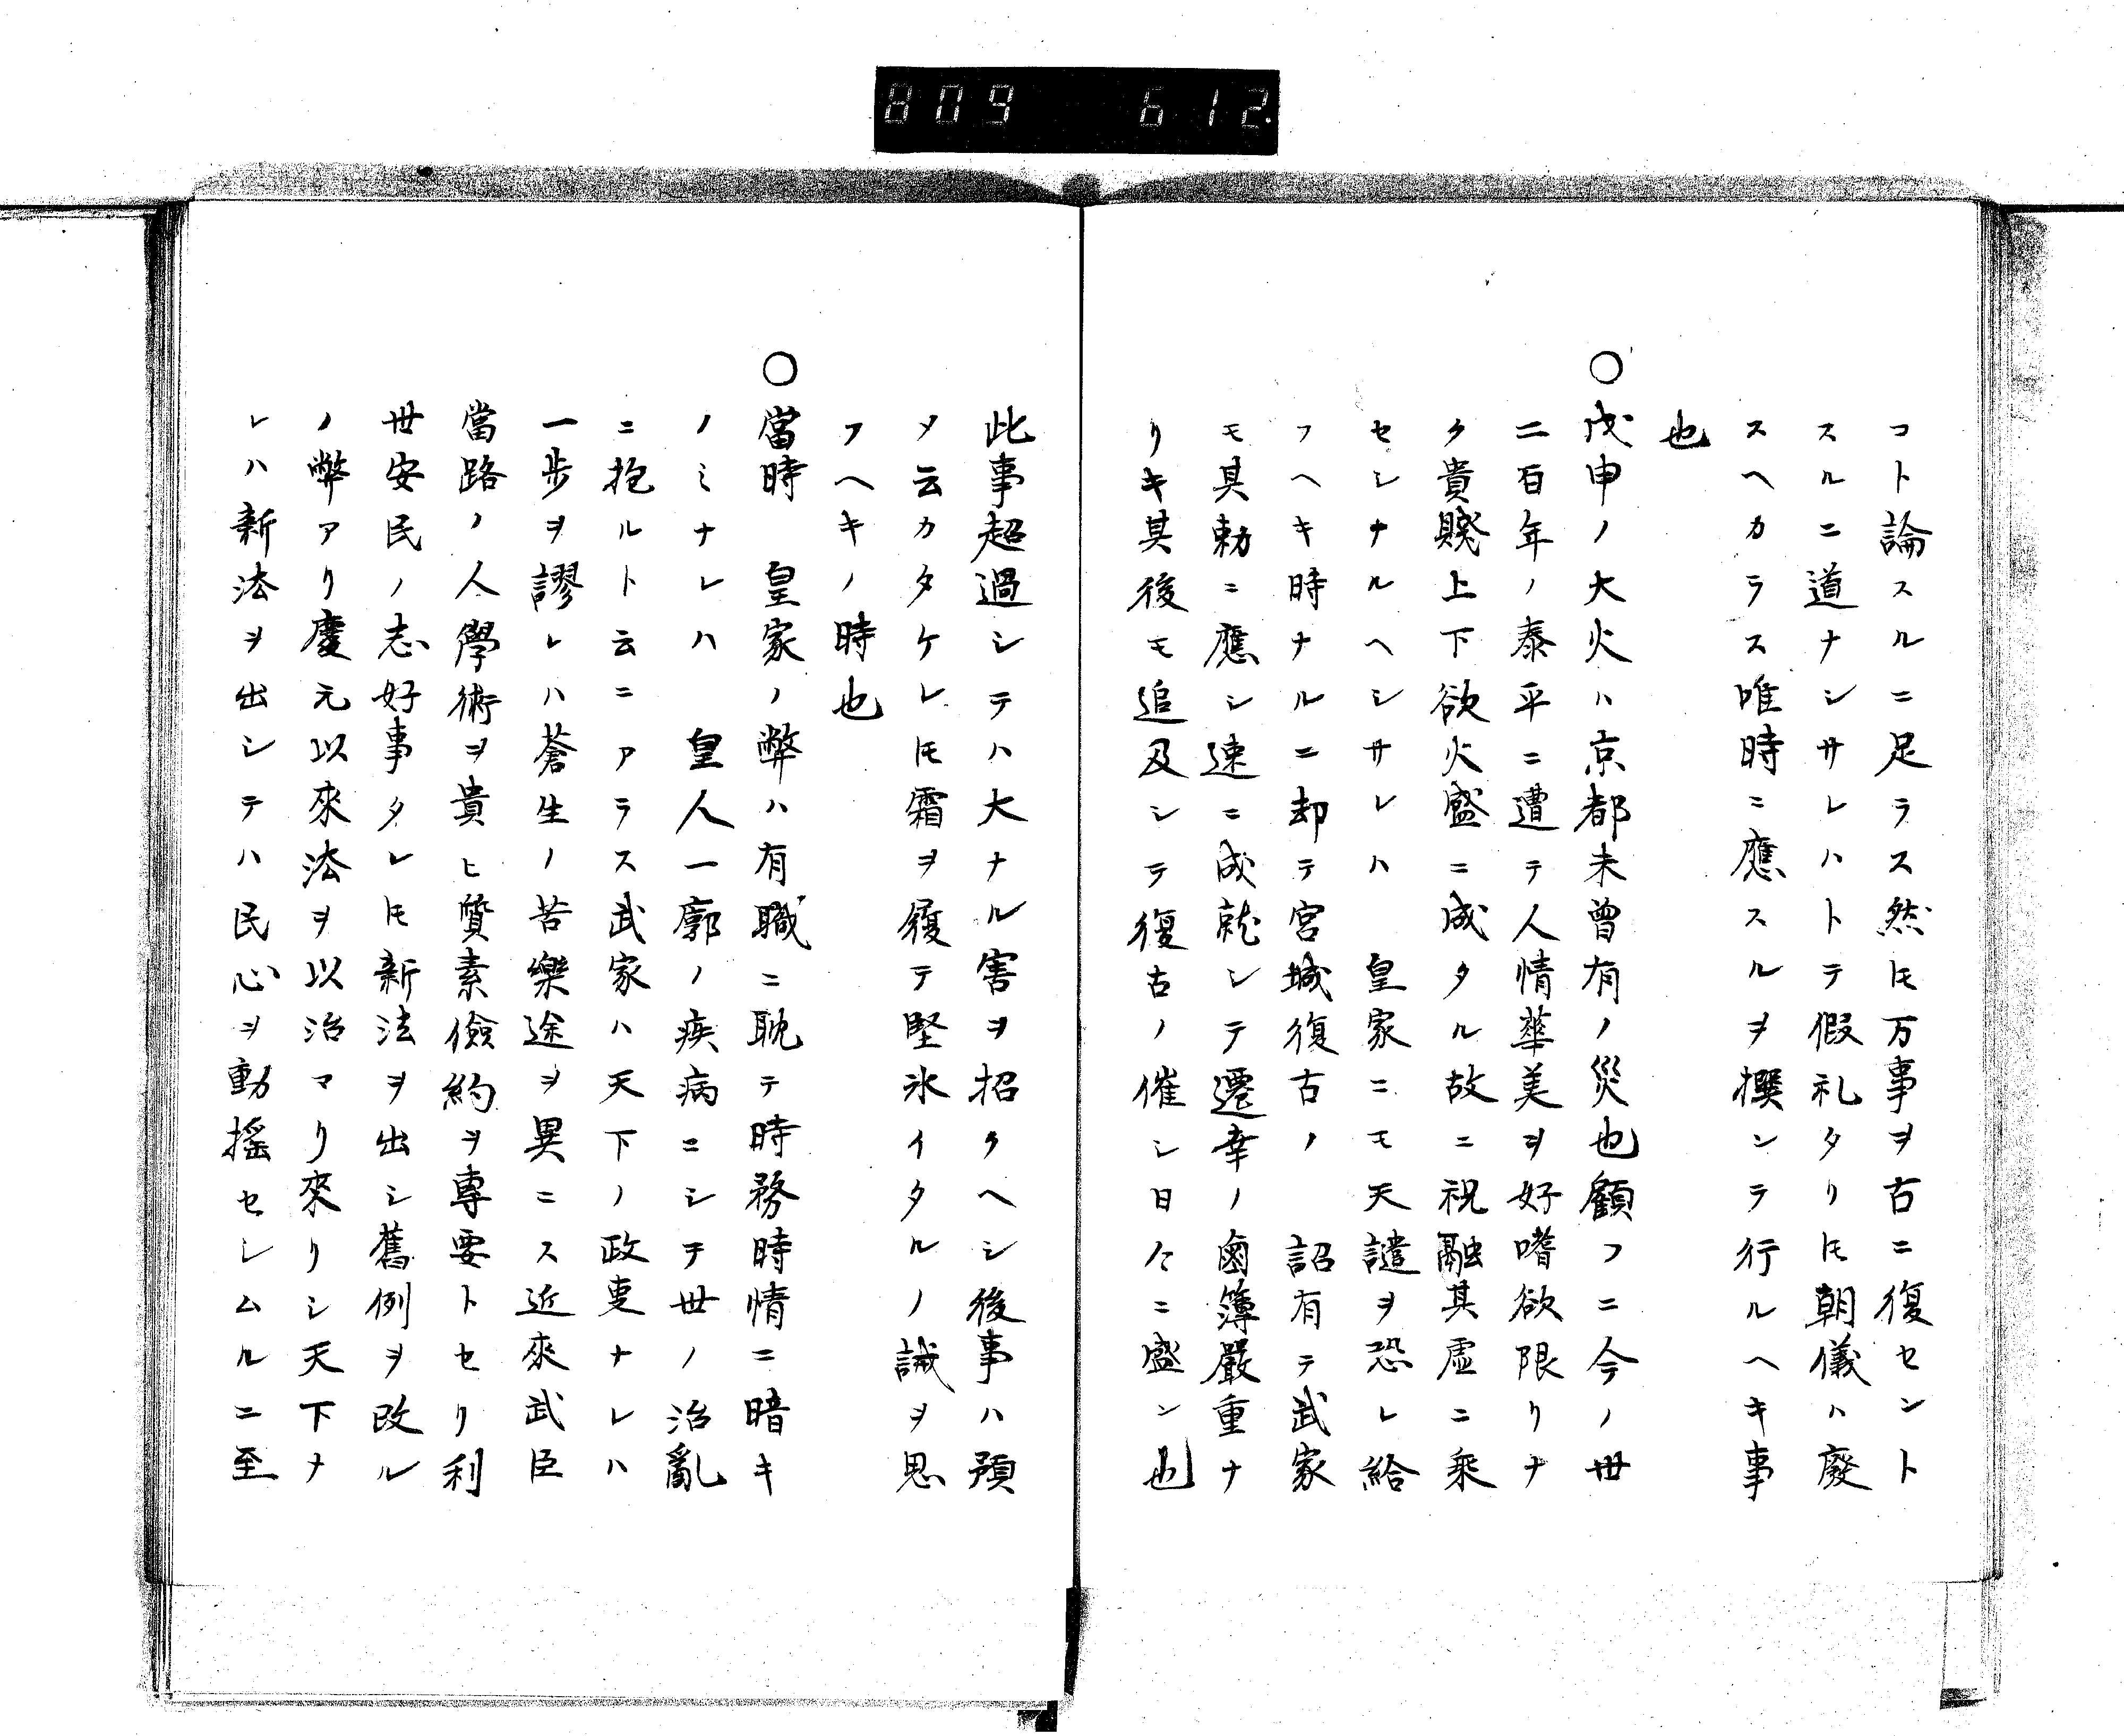 809 612.
コト論スルニ足ラス然𪜈万事ヲ古ニ復セント
スルニ道ナシサレハトテ假礼タリ𪜈朝儀ハ廢
スヘカラス唯時ニ應スルヲ撰ンテ行ルヘキ事
也
○戊申ノ大火ハ京都未曾有ノ災也顧フニ今ノ世
二百年ノ泰平ニ遭テ人情華美ヲ好嗜欲限リナ
ク貴賤上下欲火盛ニ成タル故ニ祝融其虚ニ乘
セシナルヘシサレハ 皇家ニモ天譴ヲ恐レ給
フヘキ時ナルニ却テ宮城復古ノ 詔有テ武家
モ其勅ニ應シ速ニ成就シテ遷幸ノ鹵簿嚴重ナ
リキ其後モ追及シテ復古ノ催シ日々ニ盛ン也
此事超過シテハ大ナル害ヲ招クヘシ後事ハ預
メ云カタケレ𪜈霜ヲ履テ堅氷イタルノ誡ヲ思
フヘキノ時也
○當時 皇家ノ弊ハ有職ニ耽テ時務時情ニ暗キ
ノミナレハ 皇人一廓ノ疾病ニシテ世ノ治亂
ニ抱ルト云ニアラス武家ハ天下ノ政叓ナレハ
一歩ヲ謬レハ蒼生ノ苦樂途ヲ異ニス近來武臣
當路ノ人學術ヲ貴ヒ質素儉約ヲ專要トセリ利
世安民ノ志好事タレ𪜈新法ヲ出シ舊例ヲ改ル
ノ弊アリ慶元以來法ヲ以治マリ來リシ天下ナ
レハ新法ヲ出シテハ民心ヲ動揺セシムルニ至